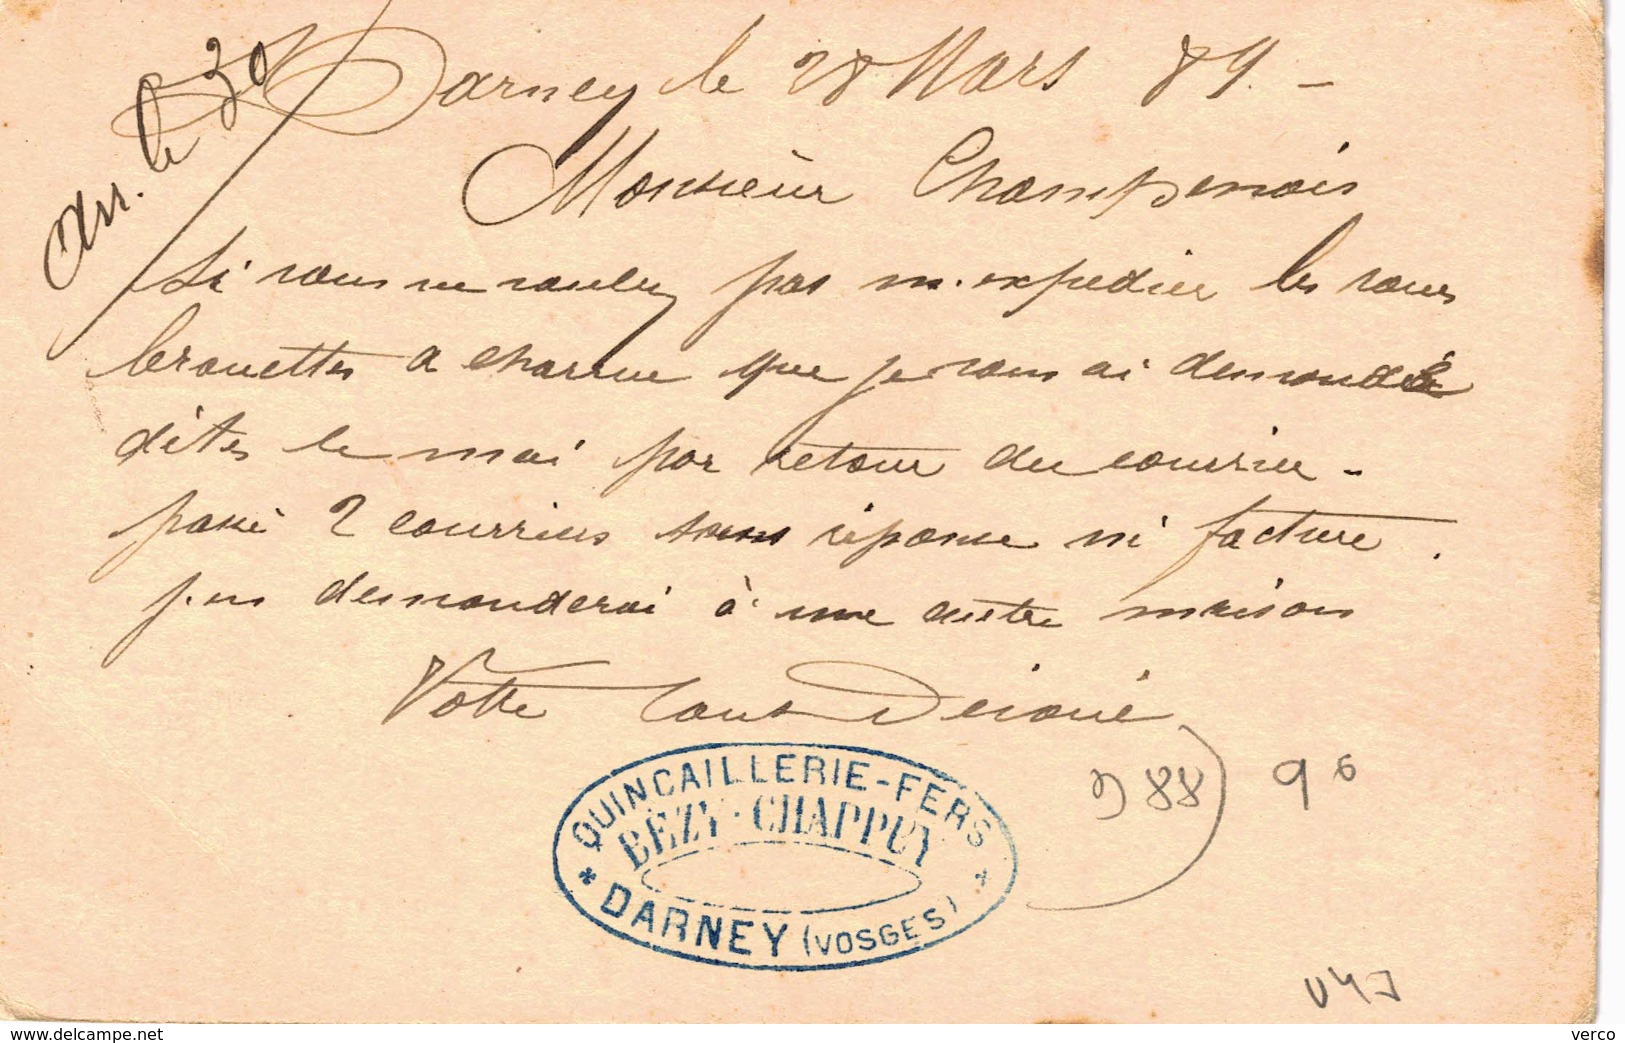 Arr. le 30
Darney le 28 Mars 89. -
Monsieur Champenois
Si vous ne voulez pas m. expedier les roues
brouettes a charrue que je vous ai demandé
dites le moi par retour du courrier -
passé 2 courriers sans réponse ni facture .
j. en demanderai à une autre maison
Votre tout Dévoué
QUINCAILLERIE-FERS
BÉZY-CHAPPUY
* DARNEY (VOSGES) *
988
9 6
verco